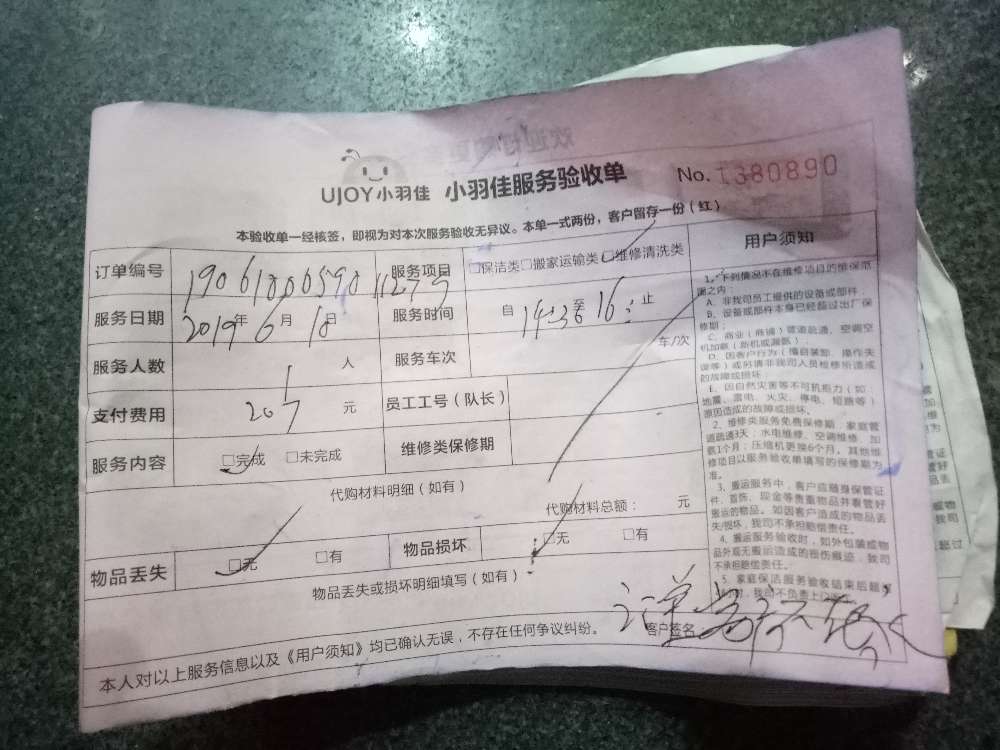 UJOY小羽佳 小羽佳服务验收单 No. 1380890
本验收单一经核签，即视为对本次服务验收无异议。本单一式两份，客户留存一份（红）
订单编号 服务项目 □保洁类□搬家运输类□维修清洗类
服务日期 2019年6月18日 服务时间 自 14:30至 16: 止
服务人数 1 人 服务车次 车/次
支付费用 205 元 员工工号（队长）
服务内容 □完成 □未完成 维修类保修期
代购材料明细（如有）
代购材料总额： 元
物品丢失 □无 □有 物品损坏 □无 □有
物品丢失或损坏明细填写（如有）：
本人对以上服务信息以及《用户须知》均已确认无误，不存在任何争议纠纷。 客户签名：
用户须知
1、下列情况不在维修项目的维保范
围之内：
A、非我司员工提供的设备或部件；
B、设备或部件本身已经超过出厂保
修期；
C、商业（商铺）管道疏通、空调空
机加氨（新机或漏氨）
D、因客户行为（擅自装卸、操作失
误等）或另请非我司人员检修所造成
的故障或损坏；
E、因自然灾害等不可抗力（如：
地震、雷电、火灾、停电、短路等）
原因造成的故障或损坏。
2、维修类服务免费保修期：家庭管
道疏通3天；水电维修、空调维修、加
氨1个月；压缩机更换6个月。其他维
修项目以服务验收单填写的保修期为
准。
3、搬运服务中，客户应随身保管证
件、首饰、现金等贵重物品并看管好
搬运的物品。如因客户造成的物品丢
失/损坏，我司不承担赔偿责任。
4、搬运服务验收时，如外包装或物
品外观无搬运造成的损伤痕迹，我司
不承担赔偿责任。
5、家庭保洁服务验收结束后超